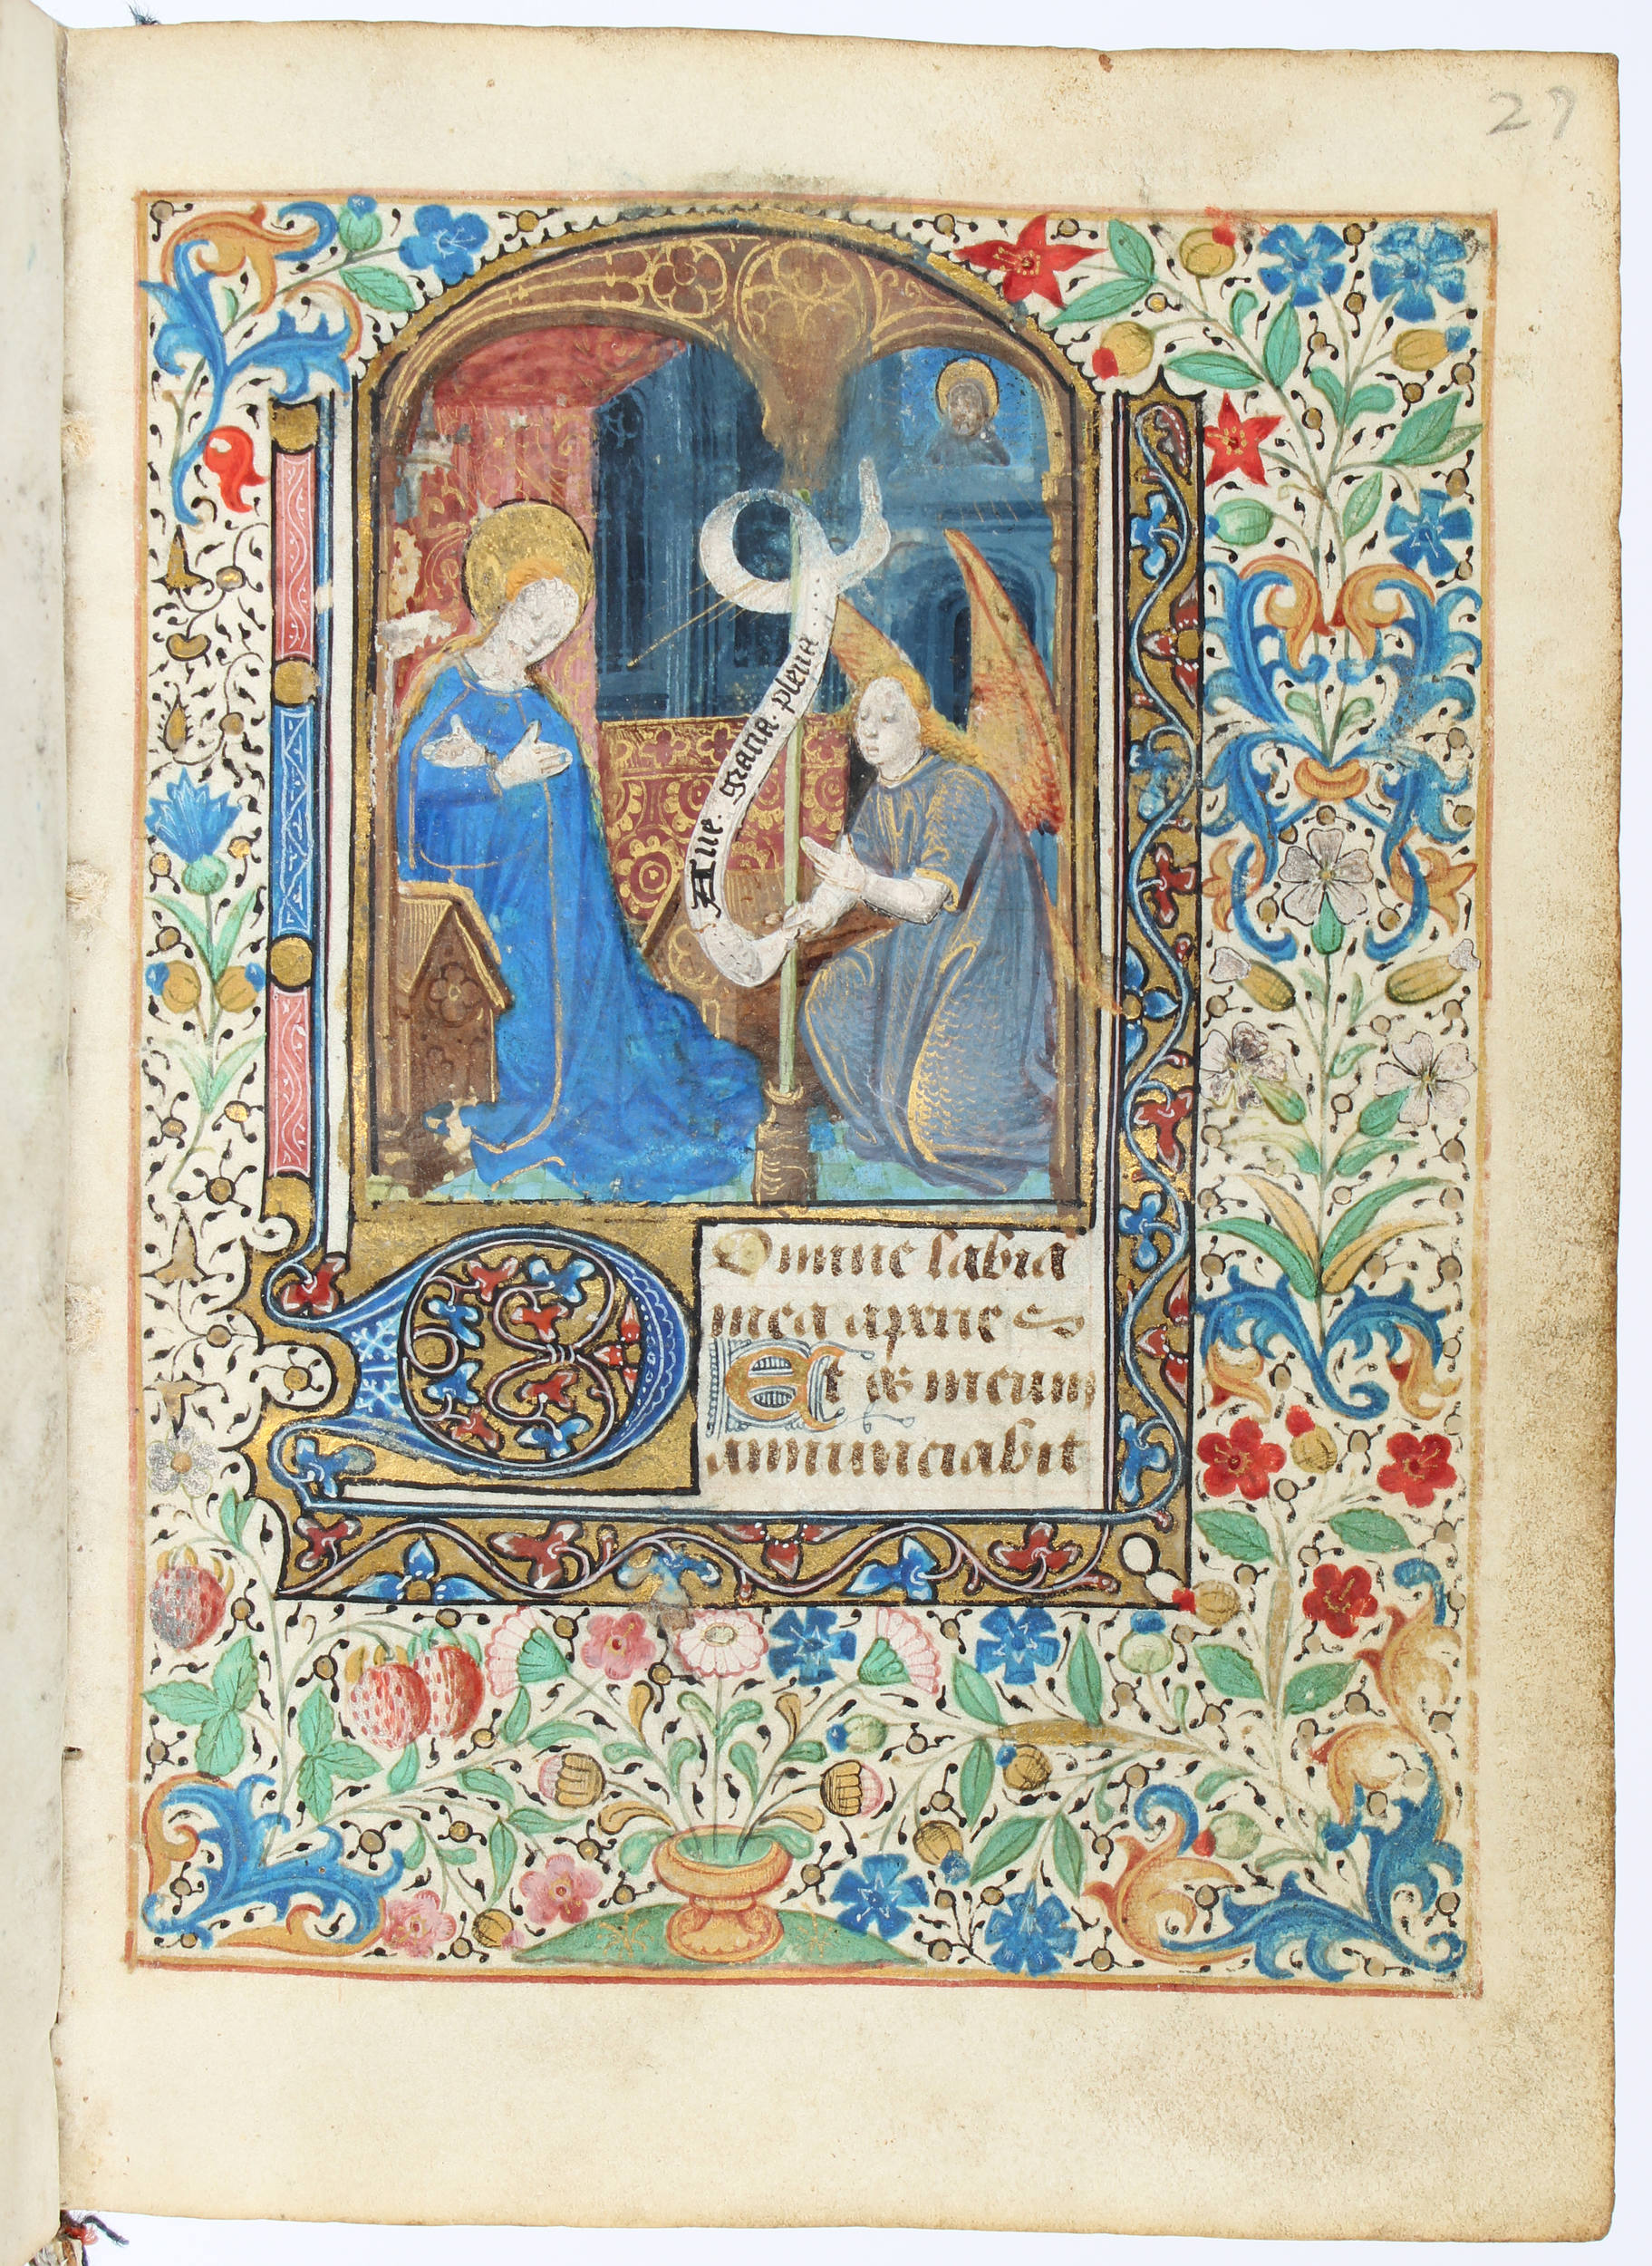 27
Aue. gracia. plena
Domine labia
mea aperies
Et os meum
annunciabit